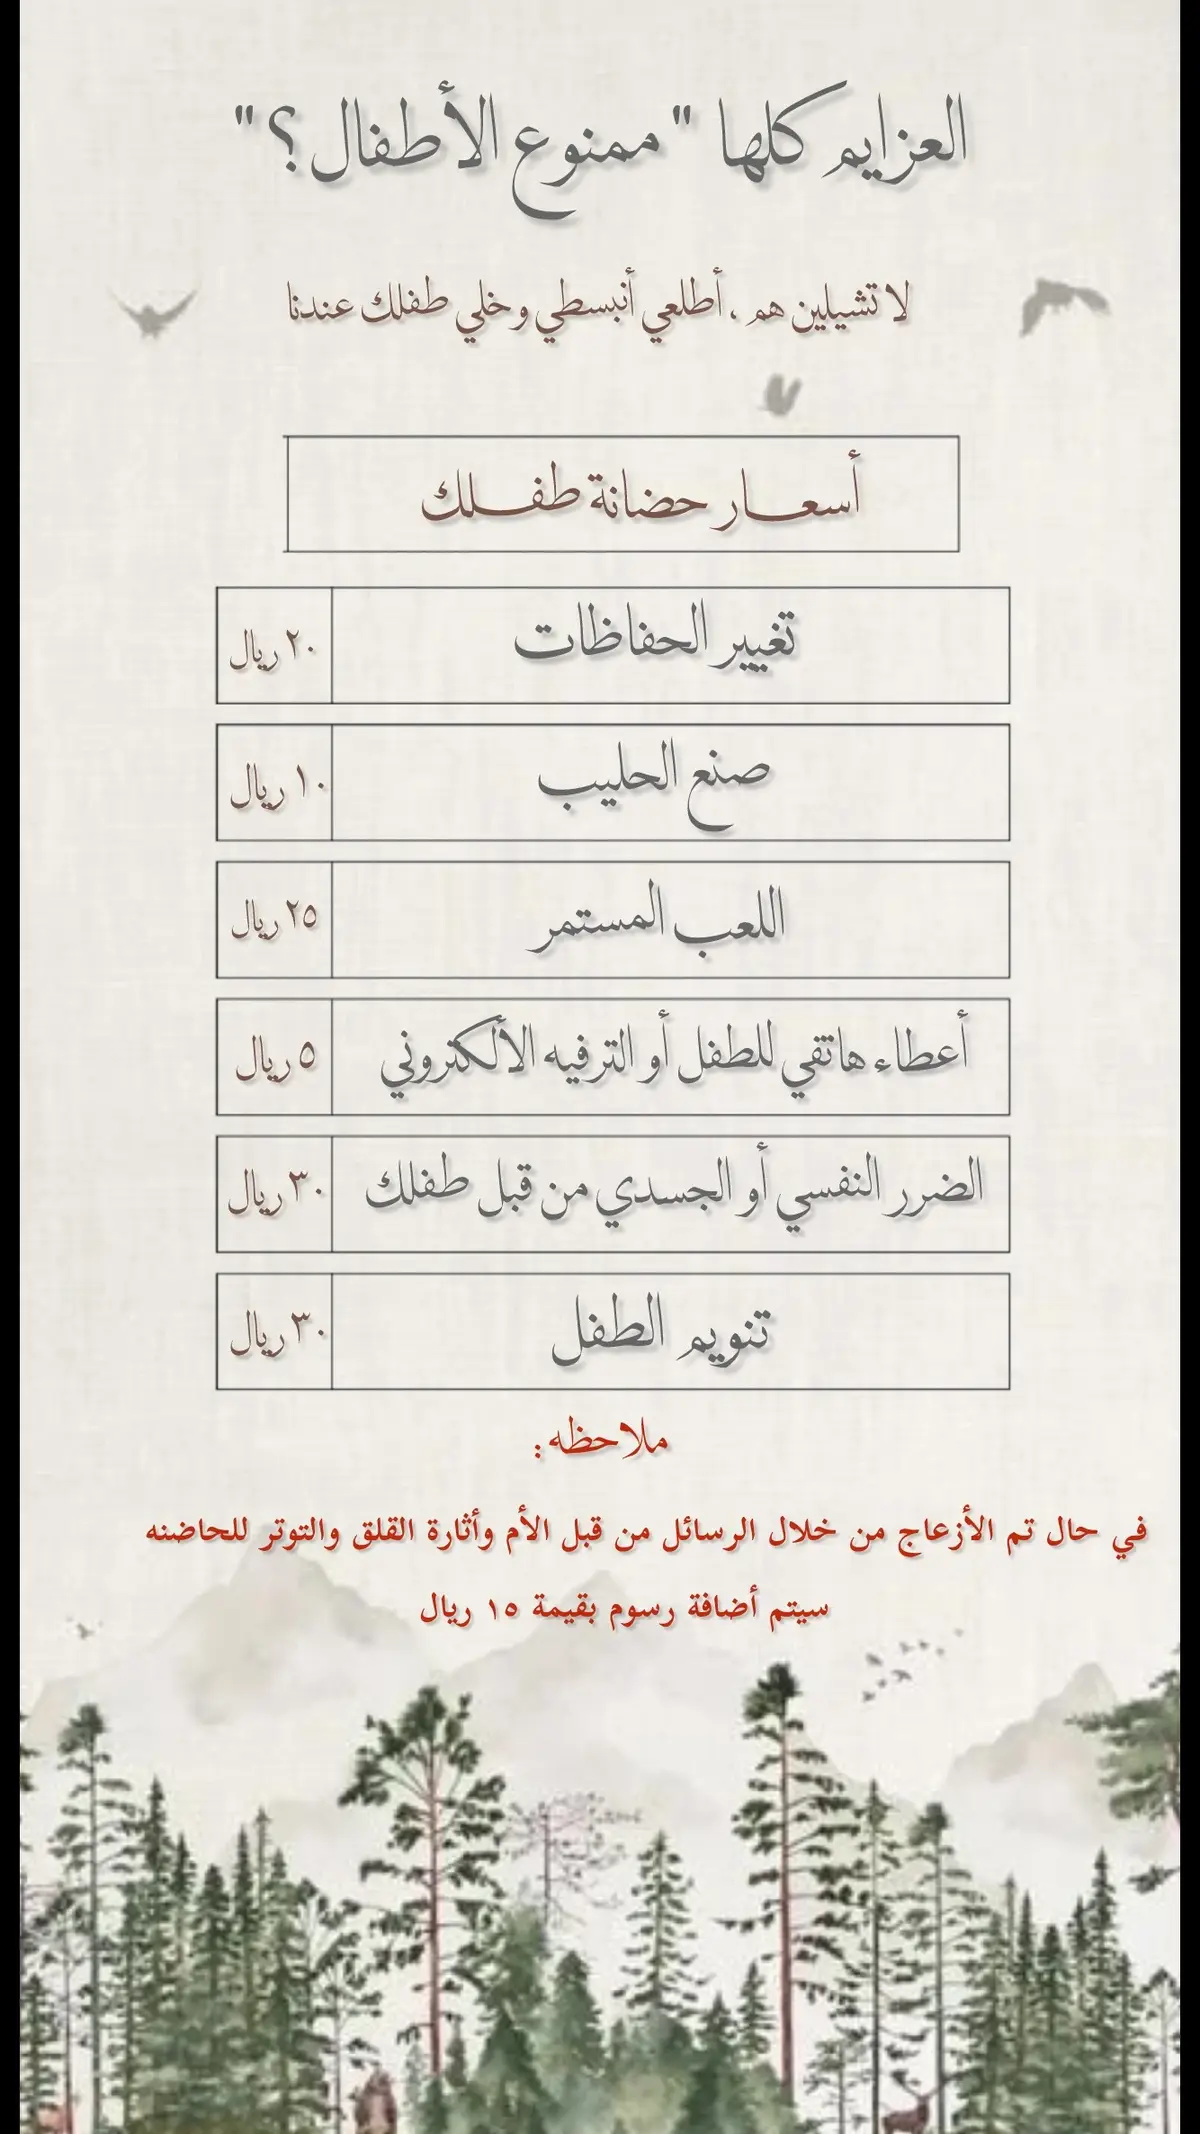 العزايم كلها "ممنوع الأطفال؟"
لا تشيلين هم ، أطلعي أنبسطي وخلي طفلك عندنا
أسعـــار حضانة طفــلك
تغيير الحفاظات ٢٠ ريال
صنع الحليب ١٠ ريال
اللعب المستمر ٢٥ ريال
أعطاء هاتفي للطفل أو الترفيه الألكتروني ٥ ريال
الضرر النفسي أو الجسدي من قبل طفلك ٣٠ ريال
تنويم الطفل ٣٠ ريال
ملاحظه :
في حال تم الأزعاج من خلال الرسائل من قبل الأم وأثارة القلق والتوتر للحاضنه
سيتم أضافة رسوم بقيمة ١٥ ريال